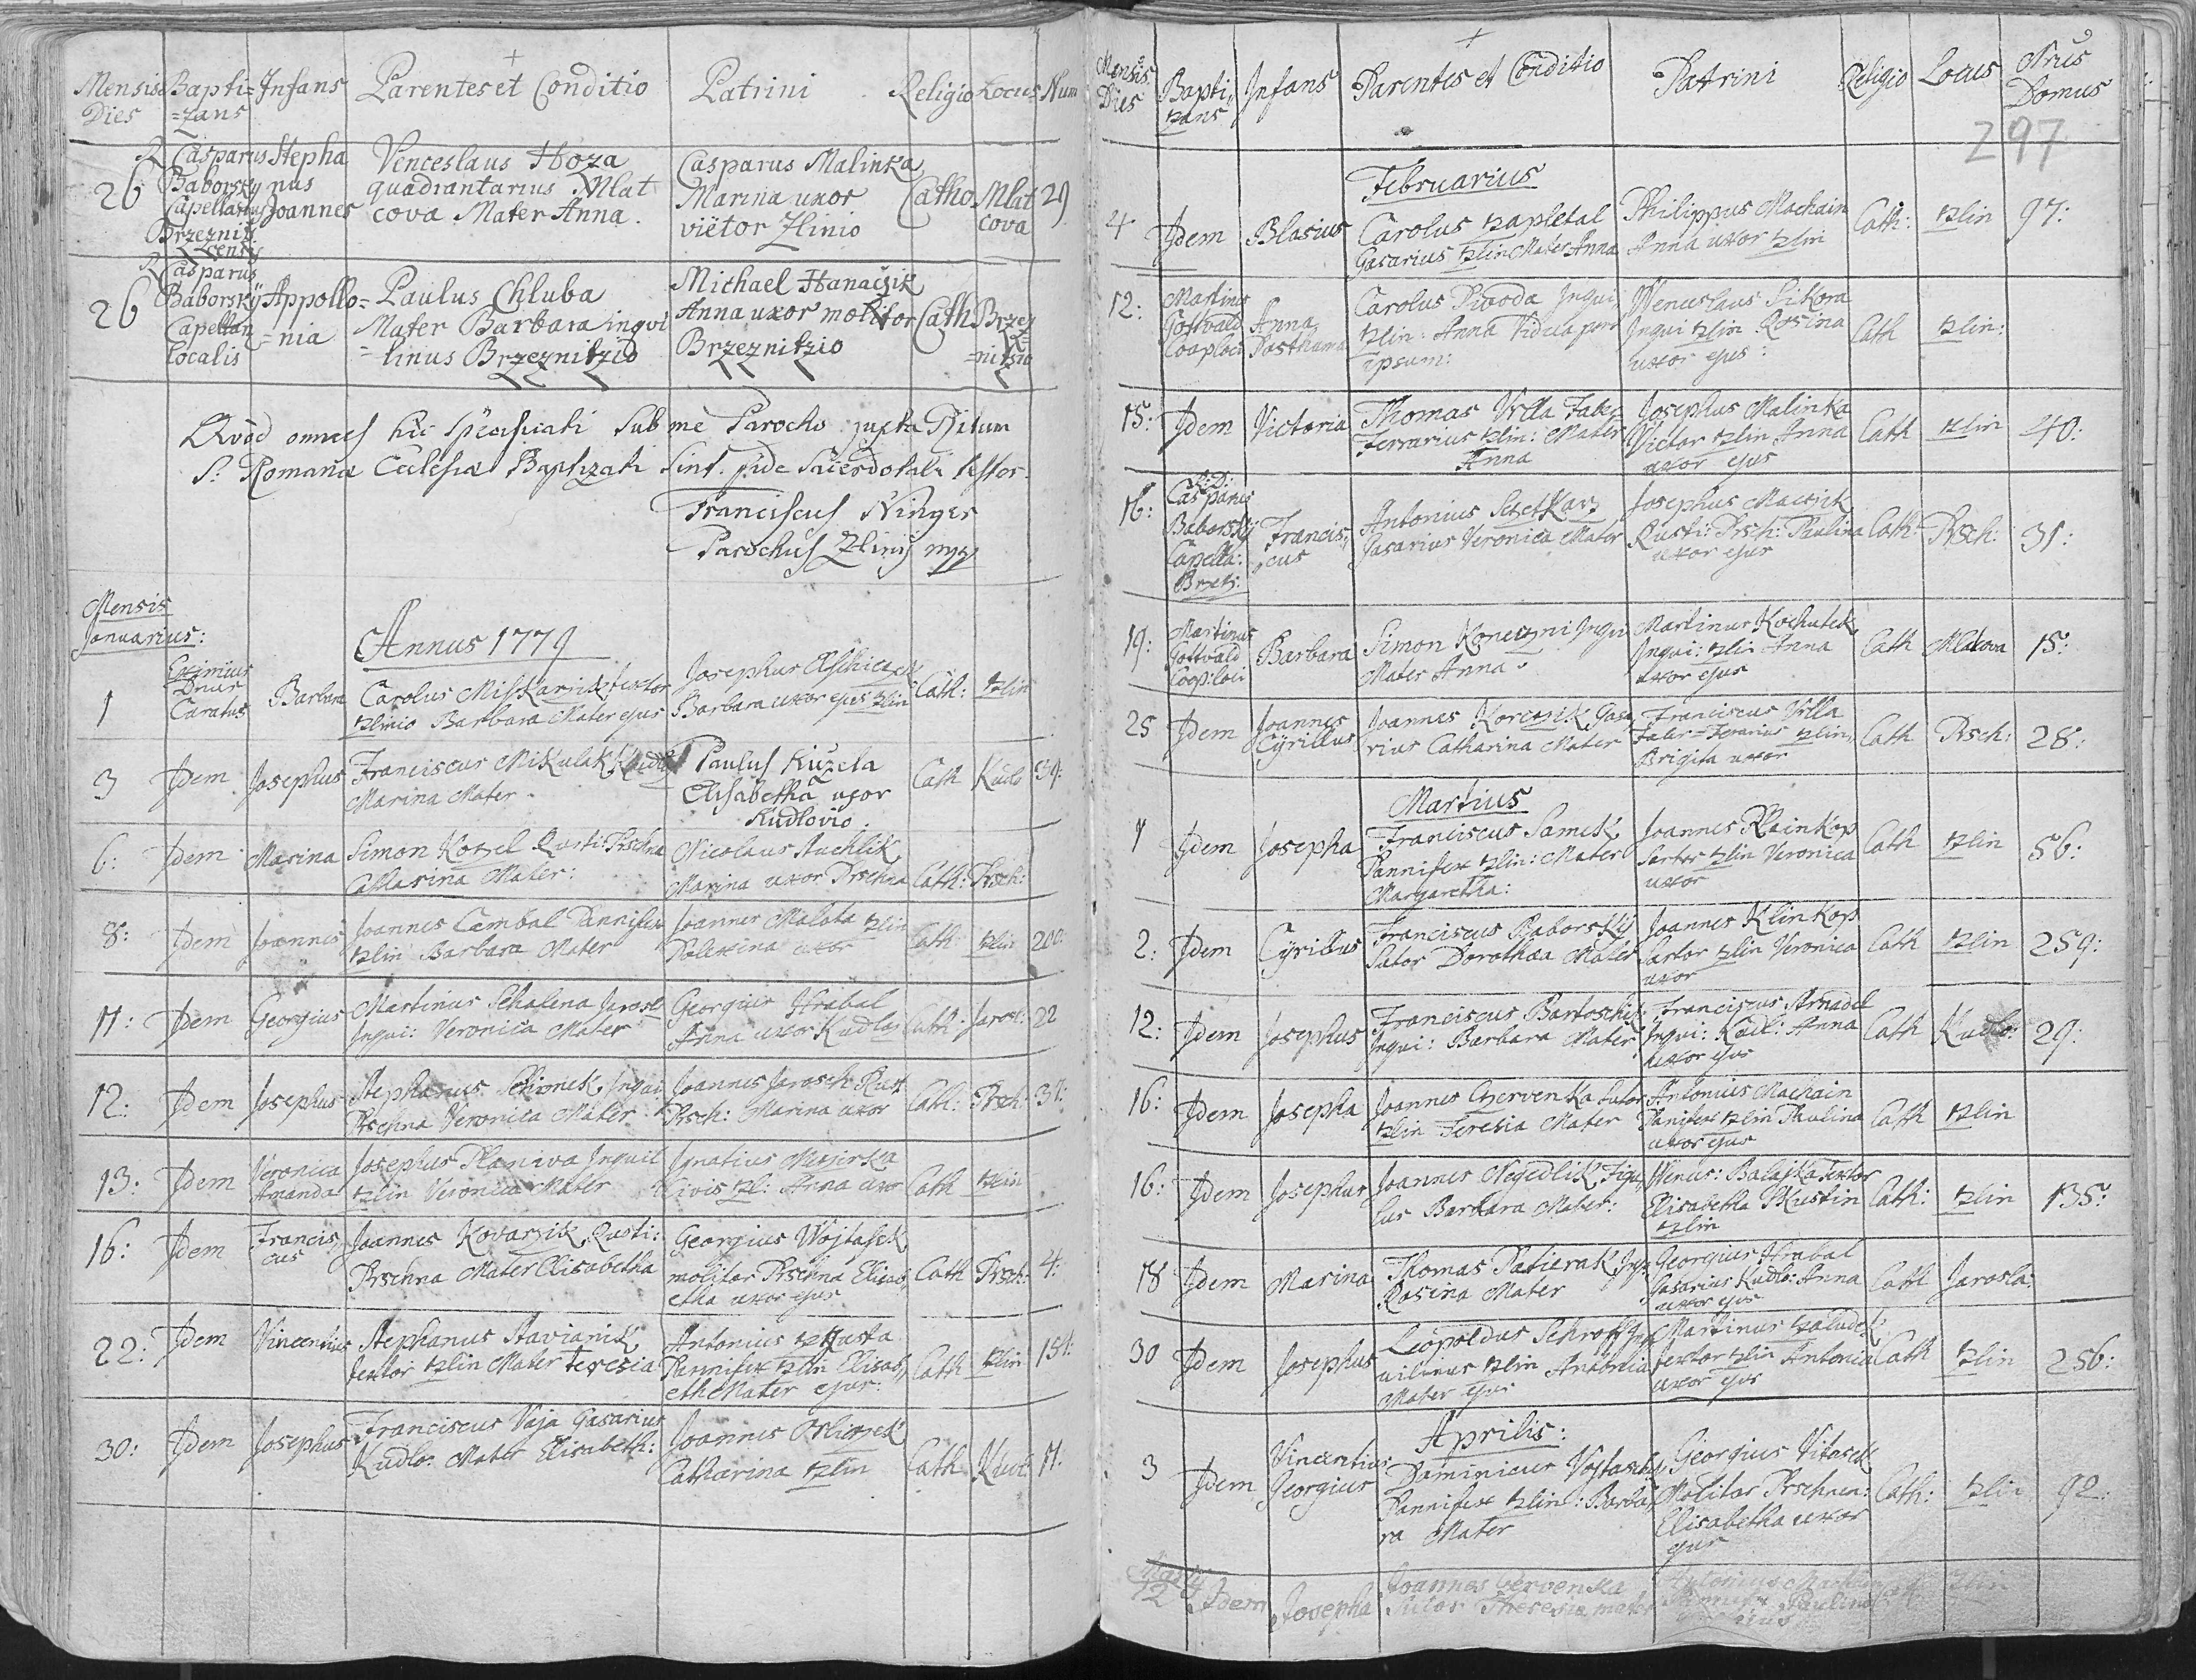 Mensis Dies Bapti=zans Infans Parentes et Conditio Patrini Religio Locus Num
26 R Casparus Baborsky Capellanus Brzeznitzensis Stephanus Joannes Venceslaus Hoza quadrantarius Mlatcova Mater Anna. Casparus Malinka Marina uxor viëtor Zlinio Catho Mlatcova 29
26 R Casparus Baborskÿ Capellan localis Appollo=nia Paulus Chluba Mater Barbara inqvi=linus Brzeznitzio Michael Hanaczik Anna uxor molitor Brzeznitzio Cath Brzeznitzio
Qvod omnes hic specificati sub me Parocho juxta Ritum
S: Romanæ Ecclesiæ Baptizati sint fide sacerdotali testor.
Franciscus Ninger
Parochus Zlinij mpp
Mensis
Januarius:
Annus 1779
1 Eximius Dnus Curatus Barbara Carolus Miskarik textor tzlinio Barbara Mater ejus Josephus Barbara uxor ejus tzlin Cath: tzlin
3 Idem Josephus Franciscus Mikulak Kudlo Marina Mater Paulus Kuzela Elisabetha uxor Kudlovio. Cath Kudlo 39:
6: Idem Marina Simon Kozel Rusti: Prschna Catharina Mater: Nicolaus Stachlik Marina uxor Prschna Cath: Prsch:
8: Idem Joannes Joannes Cambal Pannifex tzlin Barbara Mater Joannes Malota tzlin uxor Cath: tzlin 200:
11: Idem Georgius Martinus Schalena Jarosl Inqui: Veronica Mater Georgius Hrabal Anna uxor Kudlo Cath: Jarosl: 22
12: Idem Josephus Stephanus Inqui Prschna Veronica Mater Joannes Jarosch Rust Prsch: Marina uxor Cath: Prsch: 37:
13: Idem Veronica Amanda Josephus Planiva Inquil tzlin Veronica Mater Ignatius Mesirka Civis tzl: Anna uxor Cath tzlin
16: Idem Franciscus Joannes Kovarzik Rusti: Prschna Mater Elisabetha Georgius Wojtasek molitor Prschna Elisabetha uxor ejus Cath Prsch: 4:
22: Idem Vincentius Stephanus Stavianik textor tzlin Mater Teresia Antonius Pannifex tzlin Elisabeth Mater ejus: Cath tzlin 151:
30: Idem Josephus Franciscus Vaja Gasarius Kudlo: Mater Elisabeth: Joannes Catharina tzlin Cath Kudl: 11.
Mensis Dies Bapti,,zans Infans Parentes et Conditio Patrini Religio Locus Nrus Domus
297
Februarius
4 Idem Blasius Carolus tzapletal Gasarius tzlin Mater Anna Philippus Machain Anna uxor tzlin Cath: tzlin 97:
12: Martinus Gottvald Coop loci Anna Posthuma Carolus Pivoda Inqui, tzlin: Anna Vidua per ipsum: Wenceslaus Sikora Inqui tzlin Rosina uxor ejus: Cath tzlin:
15: Idem Victoria Thomas Vrlla Faber Ferrarius tzlin: Mater Anna Josephus Malinka Victor tzlin Anna uxor ejus Cath tzlin 40:
16: R:D: Casparus Baborský Capella: Brzez: Francis,,cus Antonius Jasarius Veronica Mater Josephus Macsick Rusti: Prsch: Paulina uxor ejus Cath: Prsch: 31:
19: Martinus Gottvald Coop: loci Barbara Simon Koneczni Inqui Mater Anna Martinus Kochutek Inqui: tzlin Anna uxor ejus Cath Mlatcova 15:
25 Idem Joannes Cyrillus Joannes Korczik Gasa,,rius Catharina Mater Franciscus Vrlla Faber=Ferrarius tzlin, Brigita uxor Cath Prsch: 28:
Martius
1 Idem Josepha Franciscus Samek Pannifex tzlin: Mater Margaretha: Joannes Klainkop Sartor tzlin Veronica uxor Cath tzlin 56:
2: Idem Cyrillus Franciscus Baborskÿ Sutor Dorothæa Mater Joannes Klinkop Sartor tzlin Veronica uxor Cath tzlin 259:
12: Idem Josephus Franciscus Bartoschik Inqui: Barbara Mater Franciscus Inqui: Kudl: Anna uxor ejus Cath Kudlo: 29:
16: Idem Josepha Joannes Czervenka sutor tzlin Teresia Mater Antonius Machain Panifex tzlin Paulina uxor ejus Cath tzlin
16: Idem Josephus Joannes Negedlik Figu,,lus Barbara Mater: Wences: Balajka Textor Elisabetha tzlin Cath: tzlin 135:
18 Idem Marina Thomas Patierak Inq: Rosina Mater Georgius Hrabal Gasarius Kudlo: Anna uxor ejus Cath Jarosla:
30 Idem Josephus Leopoldus Schroff Inquilinus tzlin Antonia Mater ejus Martinus tzaludek textor tzlin Antonia uxor ejus Cath tzlin 256:
Aprilis:
3 Idem Vincentius Georgius Dominicus Vojtasek Pannifex tzlin: Barba,,ra Mater Georgius Vitasek Molitor Prschnen: Elisabetha uxor ejus Cath: tzlin 92:
Martÿ 12 Idem Josepha Joannes Cervenka Sutor Theresia mater Antonius Machain Pannifex Paulina ejus Cath Zlin